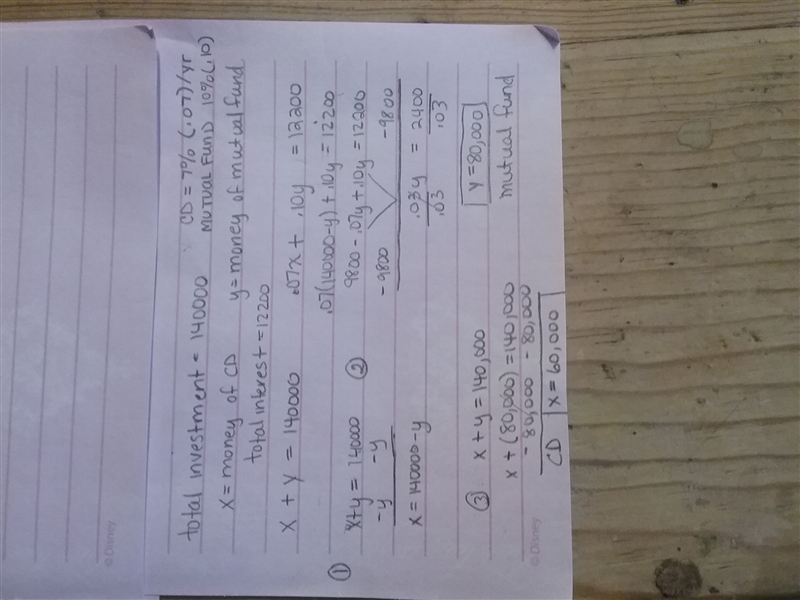 total investment = 140000 CD = 7% (.07)/yr
MUTUAL FUND 10% (.10)
x = money of CD y = money of mutual fund
total interest = 12200
x + y = 140000 .07x + .10y = 12200
① x+y = 140000
-y -y
x = 140000-y
② .07(140000-y) + .10y = 12200
9800 - .07y + .10y = 12200
-9800 -9800
.03y = 2400
.03 .03
y = 80,000
mutual fund
③ x + y = 140,000
x + (80,000) = 140,000
- 80,000 - 80,000
CD x = 60,000
© Disney
© Disney